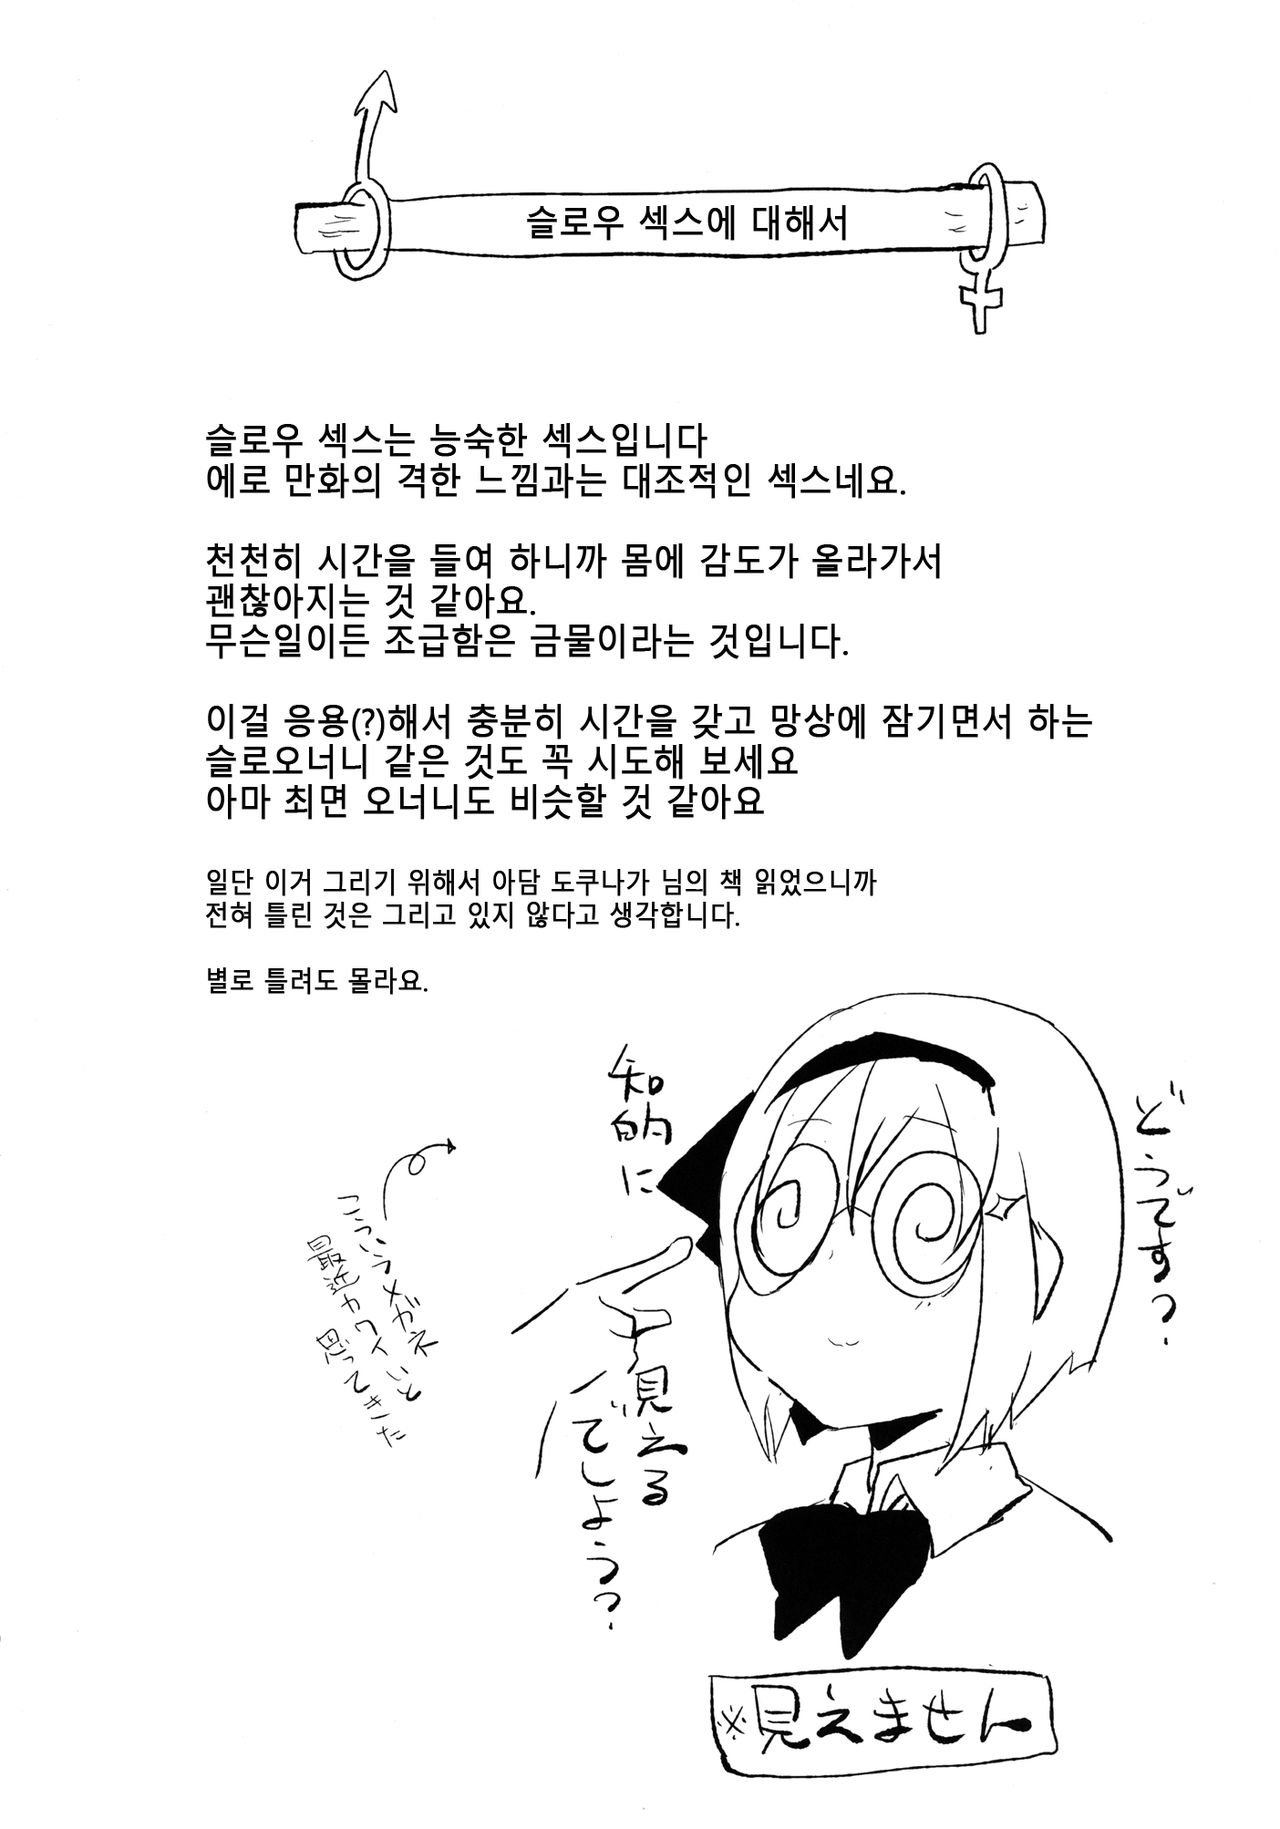 슬로우 섹스에 대해서
슬로우 섹스는 능숙한 섹스입니다
에로 만화의 격한 느낌과는 대조적인 섹스네요.
천천히 시간을 들여 하니까 몸에 감도가 올라가서
괜찮아지는 것 같아요.
무슨일이든 조급함은 금물이라는 것입니다.
이걸 응용(?)해서 충분히 시간을 갖고 망상에 잠기면서 하는
슬로오너니 같은 것도 꼭 시도해 보세요
아마 최면 오너니도 비슷할 것 같아요
일단 이거 그리기 위해서 아담 도쿠나가 님의 책 읽었으니까
전혀 틀린 것은 그리고 있지 않다고 생각합니다.
별로 틀려도 몰라요.
どうです?
知的に
見える
でしょう?
こういうメガネ
最近カワイイと
思ってきた
※見えません